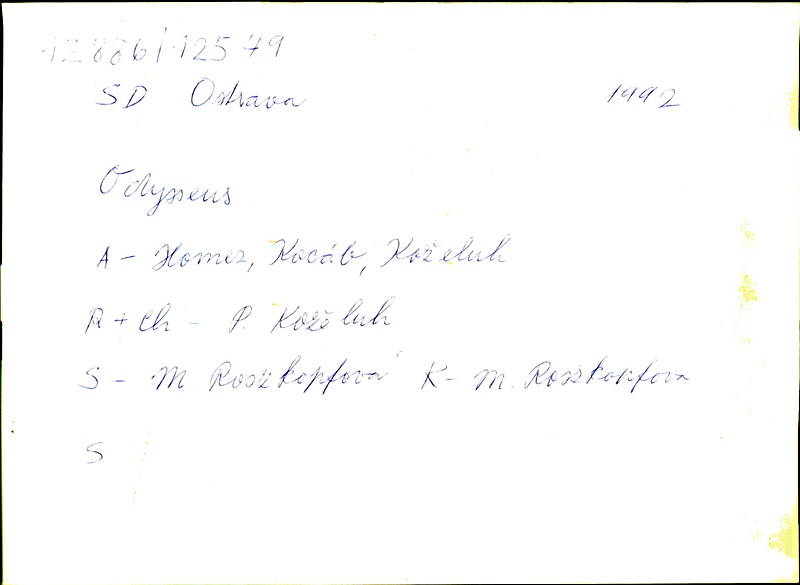 12886/12579
SD Ostrava 1992
Odysseus
A - Homer, Kocáb, Koželuh
R + Ch - P. Koželuh
S - M Roszkopfová K - M. Roszkopfova
S